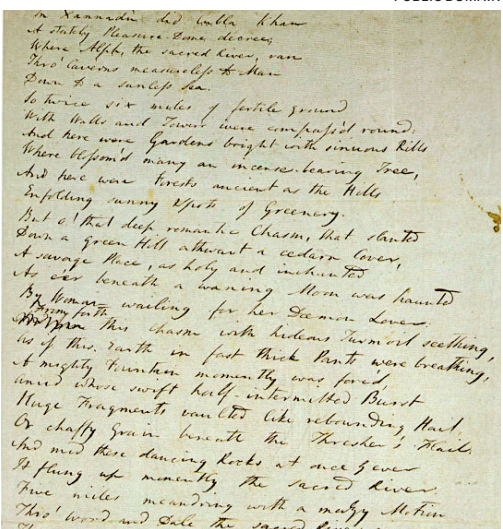 PUBLIC DOMAIN
In Xannadù did Cubla Khan
A stately Pleasure-Dome decree;
Where Alph, the sacred River, ran
Thro' Caverns measureless to Man
Down to a sunless Sea.
So twice six miles of fertile ground
With Walls and Towers were compass'd round:
And here were Gardens bright with sinuous Rills
Where blossom'd many an incense-bearing Tree,
And here were Forests ancient as the Hills
Enfolding sunny Spots of Greenery.
But o! that deep romantic Chasm, that slanted
Down a green Hill athwart a cedarn Cover,
A savage Place, as holy and inchanted
As e'er beneath a waning Moon was haunted
By Woman wailing for her Daemon Lover:
From forth
this chasm with hideous Turmoil seething,
As if this Earth in fast thick Pants were breathing,
A mighty Fountain momently was forc'd,
Amid whose swift half-intermitted Burst
Huge Fragments vaulted like rebounding Hail,
Or chaffy Grain beneath the Thresher's Flail.
And mid these dancing Rocks at once & ever
It flung up momently the sacred River.
Five miles meandring with a mazy Motion
Thro' Wood and Dale the sacred River